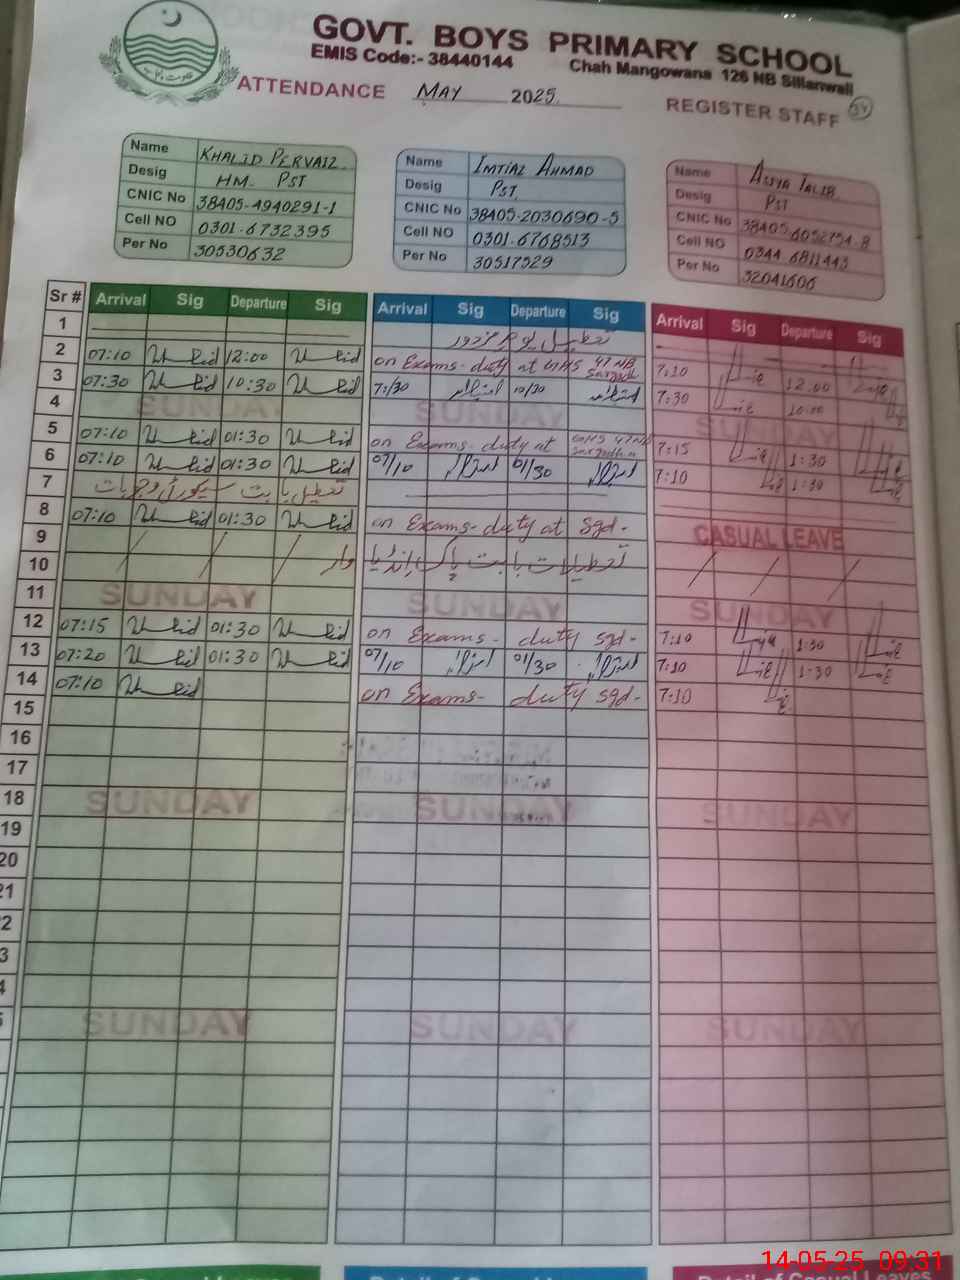 GOVT. BOYS PRIMARY SCHOOL
EMIS Code:- 38440144 Chah Mangowana 126 NB Sillanwali
ATTENDANCE MAY 2025 REGISTER STAFF 34
Name KHALID PERVAIZ
Desig HM. PST
CNIC No 38405-4940291-1
Cell NO 0301-6732395
Per No 30530632
Name IMTIAZ AHMAD
Desig PST
CNIC No 38405-2030690-5
Cell NO 0301-6768513
Per No 30517529
Name ASIYA TALIB
Desig PST
CNIC No 38405 6052754-8
Cell NO 0344 6811443
Per No 32041606
Sr # Arrival Sig Departure Sig Arrival Sig Departure Sig Arrival Sig Departure Sig
1 تعطیل یوم مزدور
2 07:10 12:00 on Exams-duty at GHS 47 NB Sargodha 7:10 12:00
3 07:30 10:30 7:30 10/30 7:30 10:30
4 SUNDAY SUNDAY SUNDAY
5 07:10 01:30 on Exams-duty at GHS 47 NB Sargodha 7:15 1:30
6 07:10 01:30 07/10 01/30 7:10 1:30
7 تعطیل بابت سیکورٹی وجوہات
8 07:10 01:30 on Exams-duty at Sgd- CASUAL LEAVE
9 تعطیلات بابت پاک انڈیا وار
10
11 SUNDAY SUNDAY SUNDAY
12 07:15 01:30 on Exams- duty Sgd- 7:10 1:30
13 07:20 01:30 07/10 01/30 7:10 1:30
14 07:10 on Exams- duty Sgd- 7:10
15
16
17
18 SUNDAY SUNDAY SUNDAY
19
20
21
22
SUNDAY SUNDAY SUNDAY
14-05-25 09:31